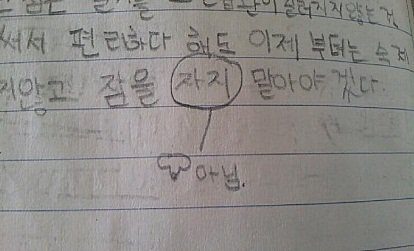 살려지지 않는 것
써서 편리하다 해도 이제 부터는 숙제
지않고 잠을 자지 말아야겠다
아님.